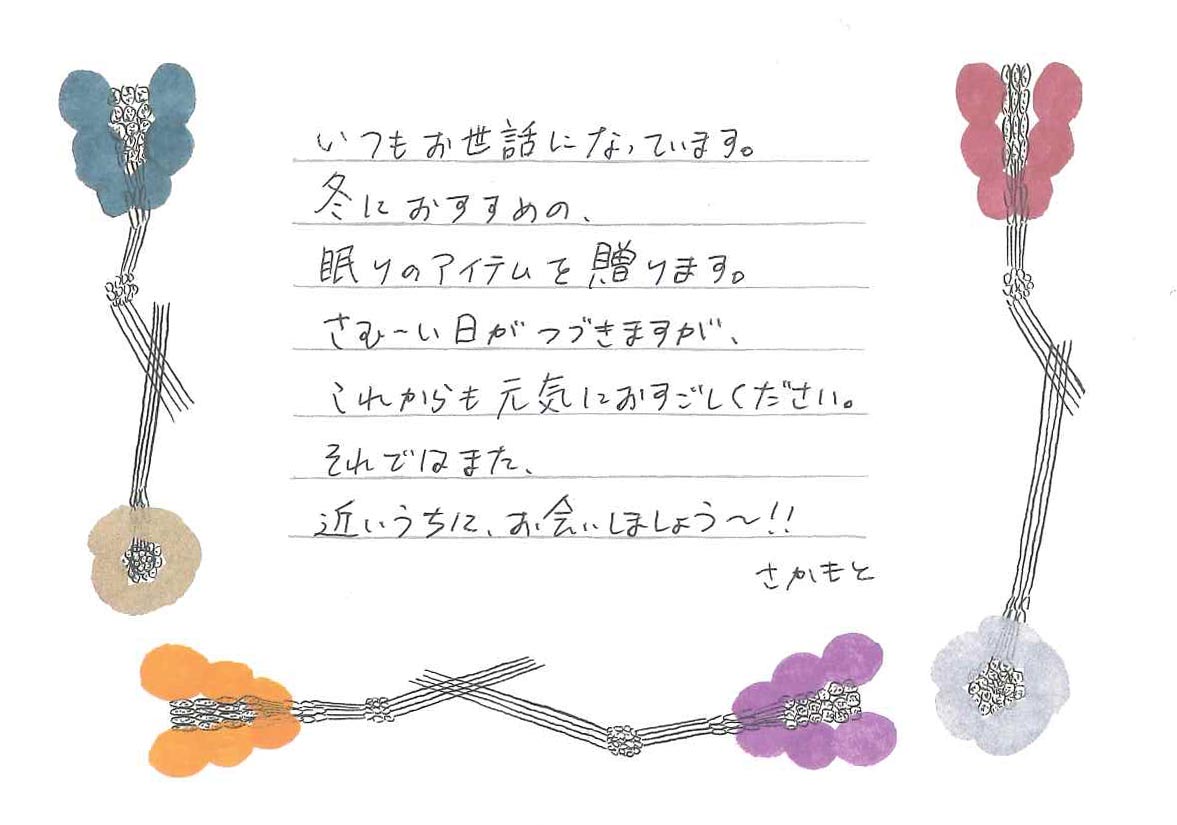 いつもお世話になっています。
冬におすすめの、
眠りのアイテムを贈ります。
さむ〜い日がつづきますが、
これからも元気におすごしください。
それではまた、
近いうちに、お会いしましょう〜!!
さかもと